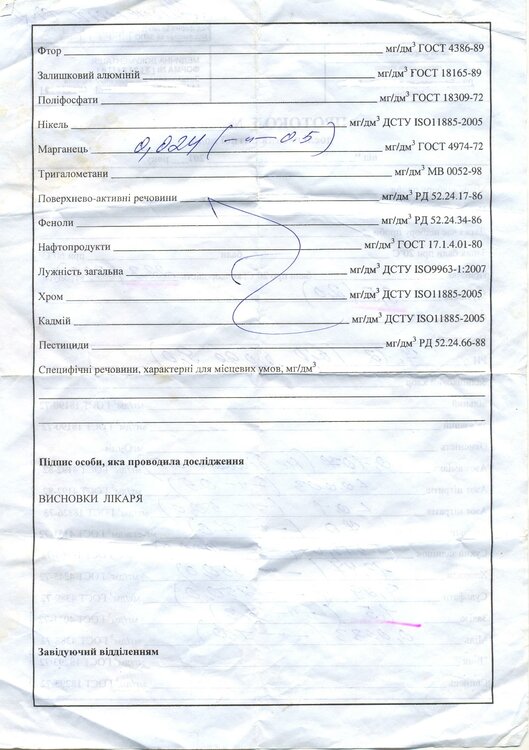 Фтор мг/дм³ ГОСТ 4386-89
Залишковий алюміній мг/дм³ ГОСТ 18165-89
Поліфосфати мг/дм³ ГОСТ 18309-72
Нікель мг/дм³ ДСТУ ISO11885-2005
Марганець 0,024 (—"— 0.5) мг/дм³ ГОСТ 4974-72
Тригалометани мг/дм³ МВ 0052-98
Поверхнево-активні речовини мг/дм³ РД 52.24.17-86
Феноли мг/дм³ РД 52.24.34-86
Нафтопродукти мг/дм³ ГОСТ 17.1.4.01-80
Лужність загальна мг/дм³ ДСТУ ISO9963-1:2007
Хром мг/дм³ ДСТУ ISO11885-2005
Кадмій мг/дм³ ДСТУ ISO11885-2005
Пестициди мг/дм³ РД 52.24.66-88
Специфічні речовини, характерні для місцевих умов, мг/дм³
Підпис особи, яка проводила дослідження
ВИСНОВКИ ЛІКАРЯ
Завідуючий відділенням